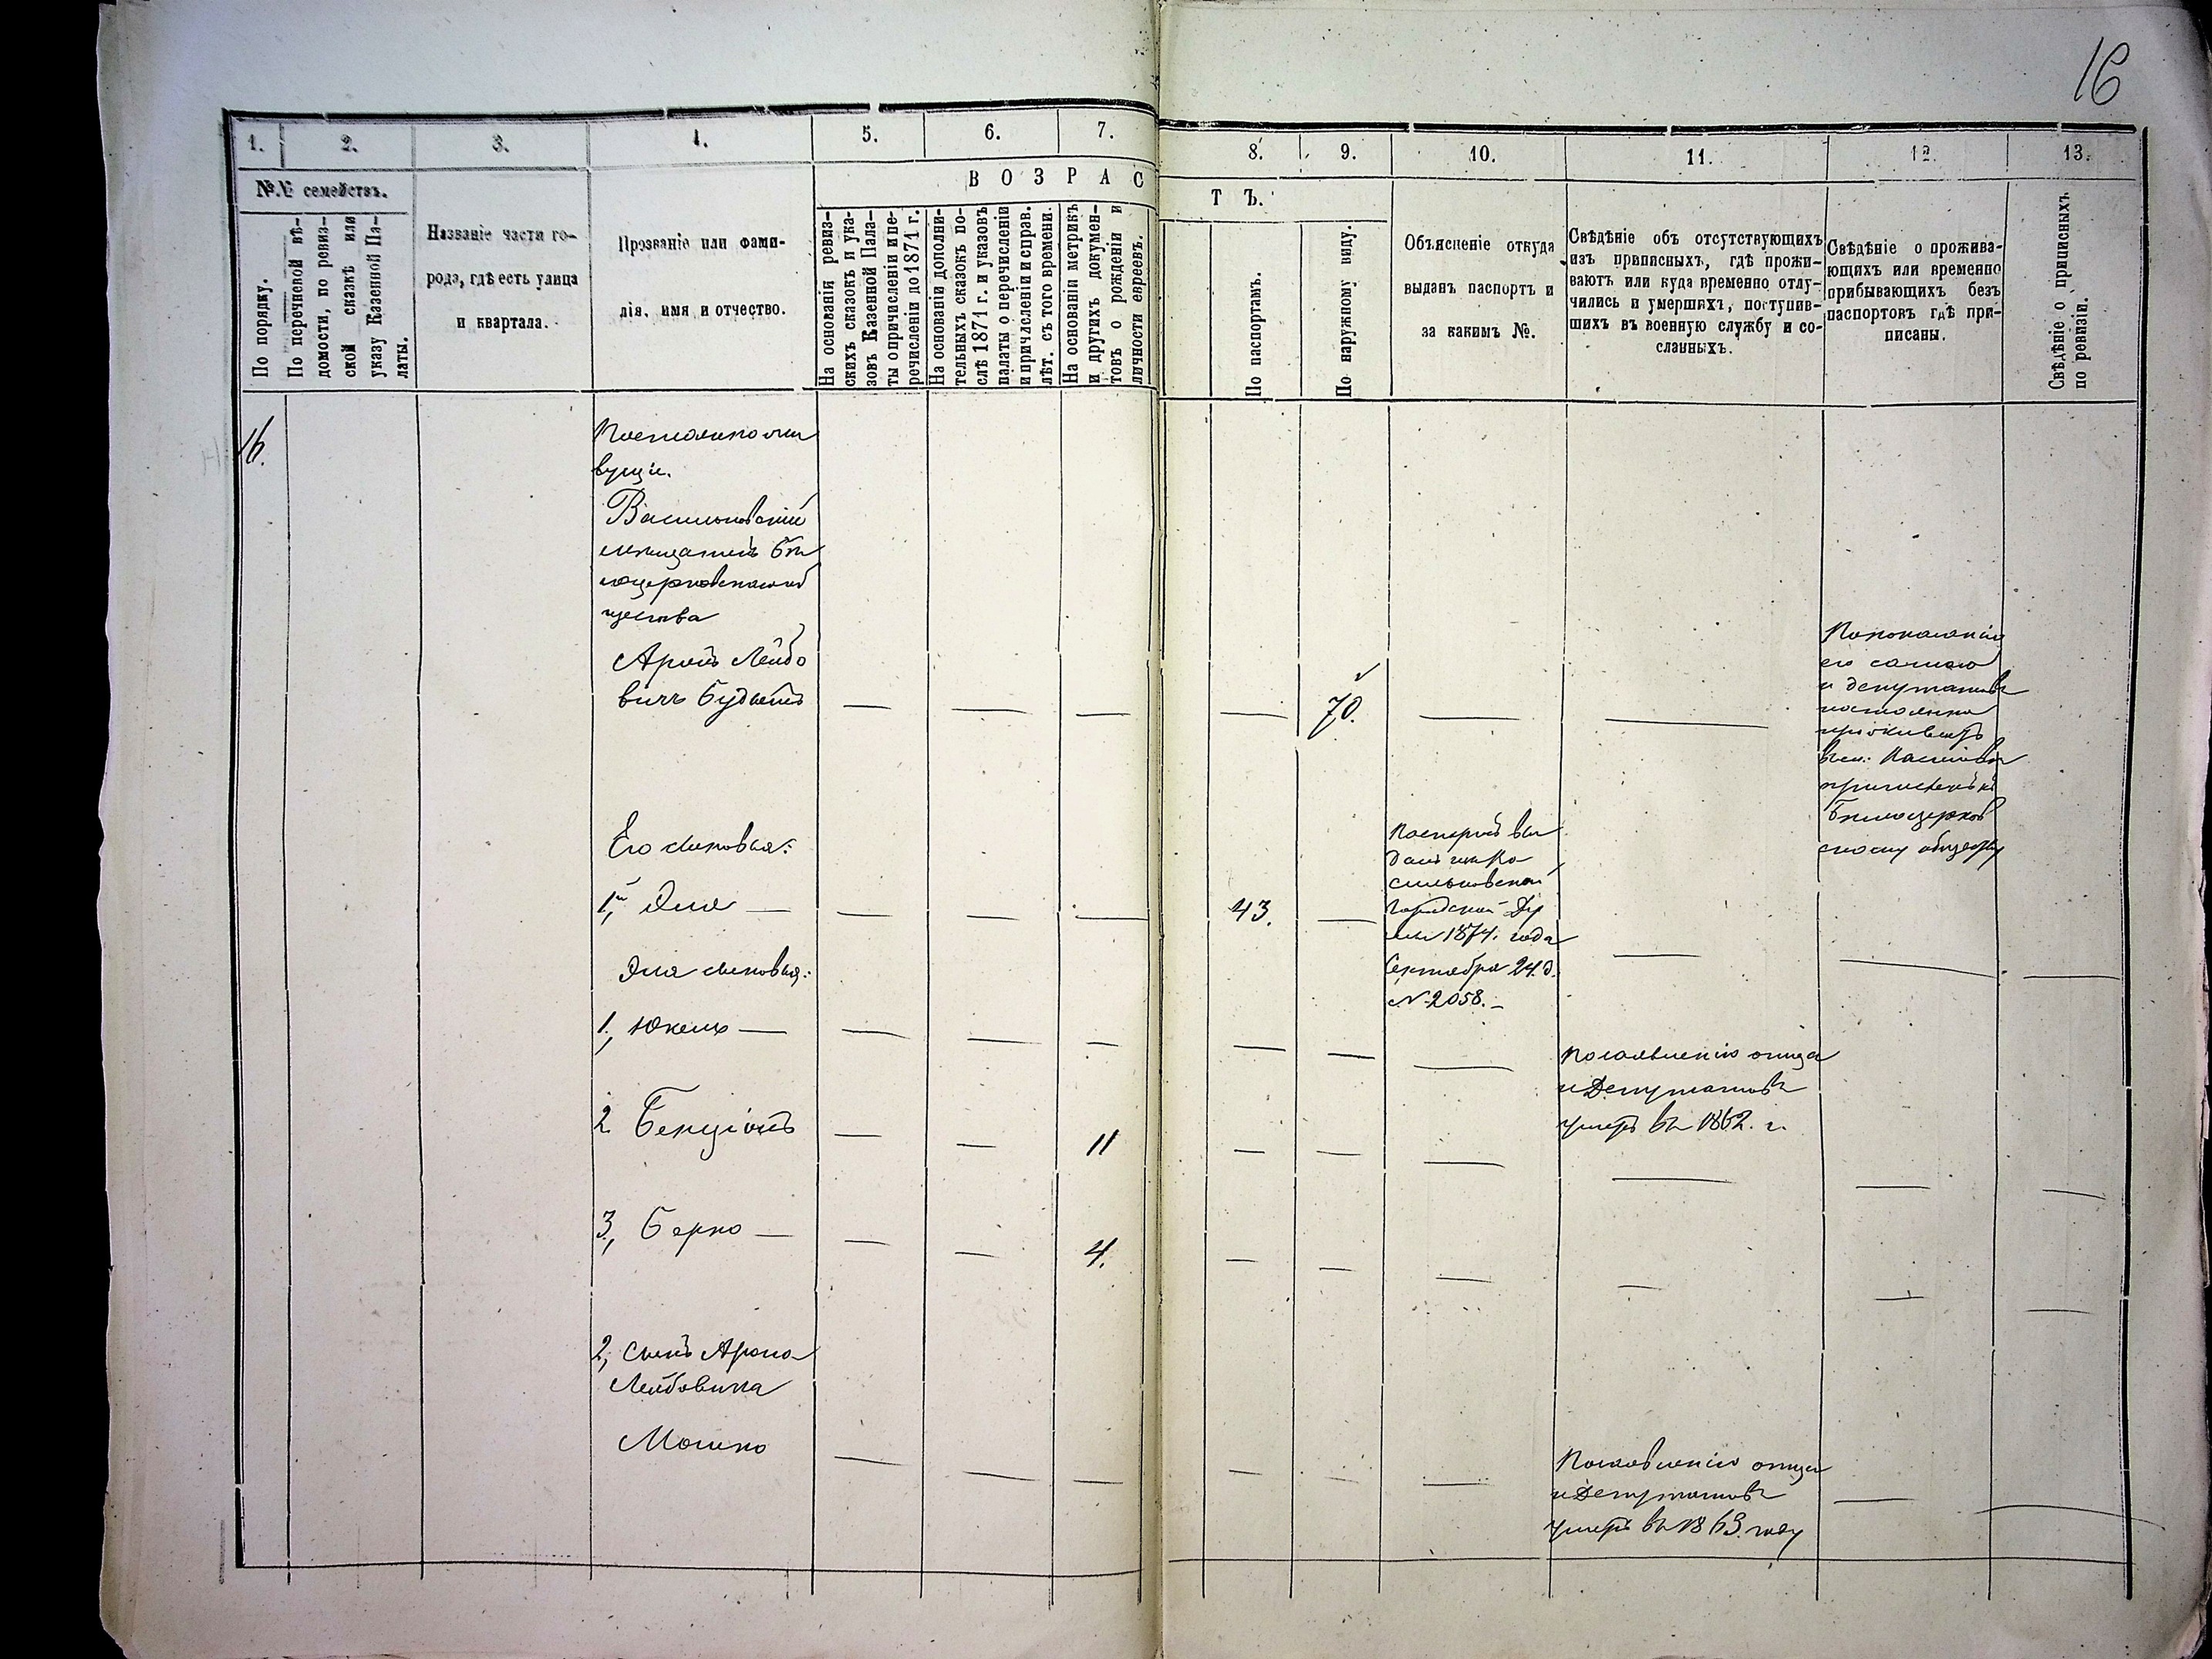 16
1.
2.
3.
4.
5.
6.
7.
8.
9.
10.
11.
12.
13.
№№ семействъ.
В О З Р А С
Т Ъ.
По порядку.
По перечневой вѣ-
домости, по ревиз-
ской сказкѣ или
указу Казенной Па-
латы.
Названіе части го-
рода, гдѣ есть улица
и квартала.
Прозваніе или фами-
лія, имя и отчество.
На основаніи ревиз-
скихъ сказокъ и ука-
зовъ Казенной Пала-
ты о причисленіи и пе-
речисленіи до 1871 г.
На основаніи дополни-
тельныхъ сказокъ по-
слѣ 1871 г. и указовъ
палаты о перечисленіи
и причисленіи и справ.
лѣт. съ того времени.
На основаніи метрикъ
и другихъ докумен-
товъ о рожденіи и
личности евреевъ.
По паспортамъ.
По наружному виду.
Объясненіе откуда
выданъ паспортъ и
за какимъ №.
Свѣдѣніе объ отсутствующихъ
изъ приписныхъ, гдѣ прожи-
ваютъ или куда временно отлу-
чились и умершихъ, поступив-
шихъ въ военную службу и со-
сланныхъ.
Свѣдѣніе о прожива-
ющихъ или временно
прибывающихъ безъ
паспортовъ гдѣ при-
писаны.
Свѣдѣніе о приписныхъ
по ревизіи.
16.
Постоянножи
вущіе.
Васильковскій
мѣщанинъ Бѣ
лоцерковскаго об
щества
Аронъ Лейбо
вичъ
— — — — 70. — —
По показанію
его самаго
и депутатовъ
постоянно
проживаетъ
причисленъ къ
Бѣлоцерков
скому обществу
Его сыновья:
1й, Эля — — — — 43. —
Паспортъ вы
данъ изъ Ва
сильковской
Городской Ду
мы 1874. года
Сентября 24. д.
№ 2058. —
— — —
Эля сыновья:
1, Юкель — — — — — — —
По заявленію отца
и Депутатовъ
умеръ въ 1862. г.
2. Бенціонъ — — 11 — — — — — —
3, Берко — — — 4. — — — — — —
2, сынъ Арона
Лейбовича
Мошко — — — — — —
По заявленію отца
и Депутатовъ
умеръ въ 1863. году
— —